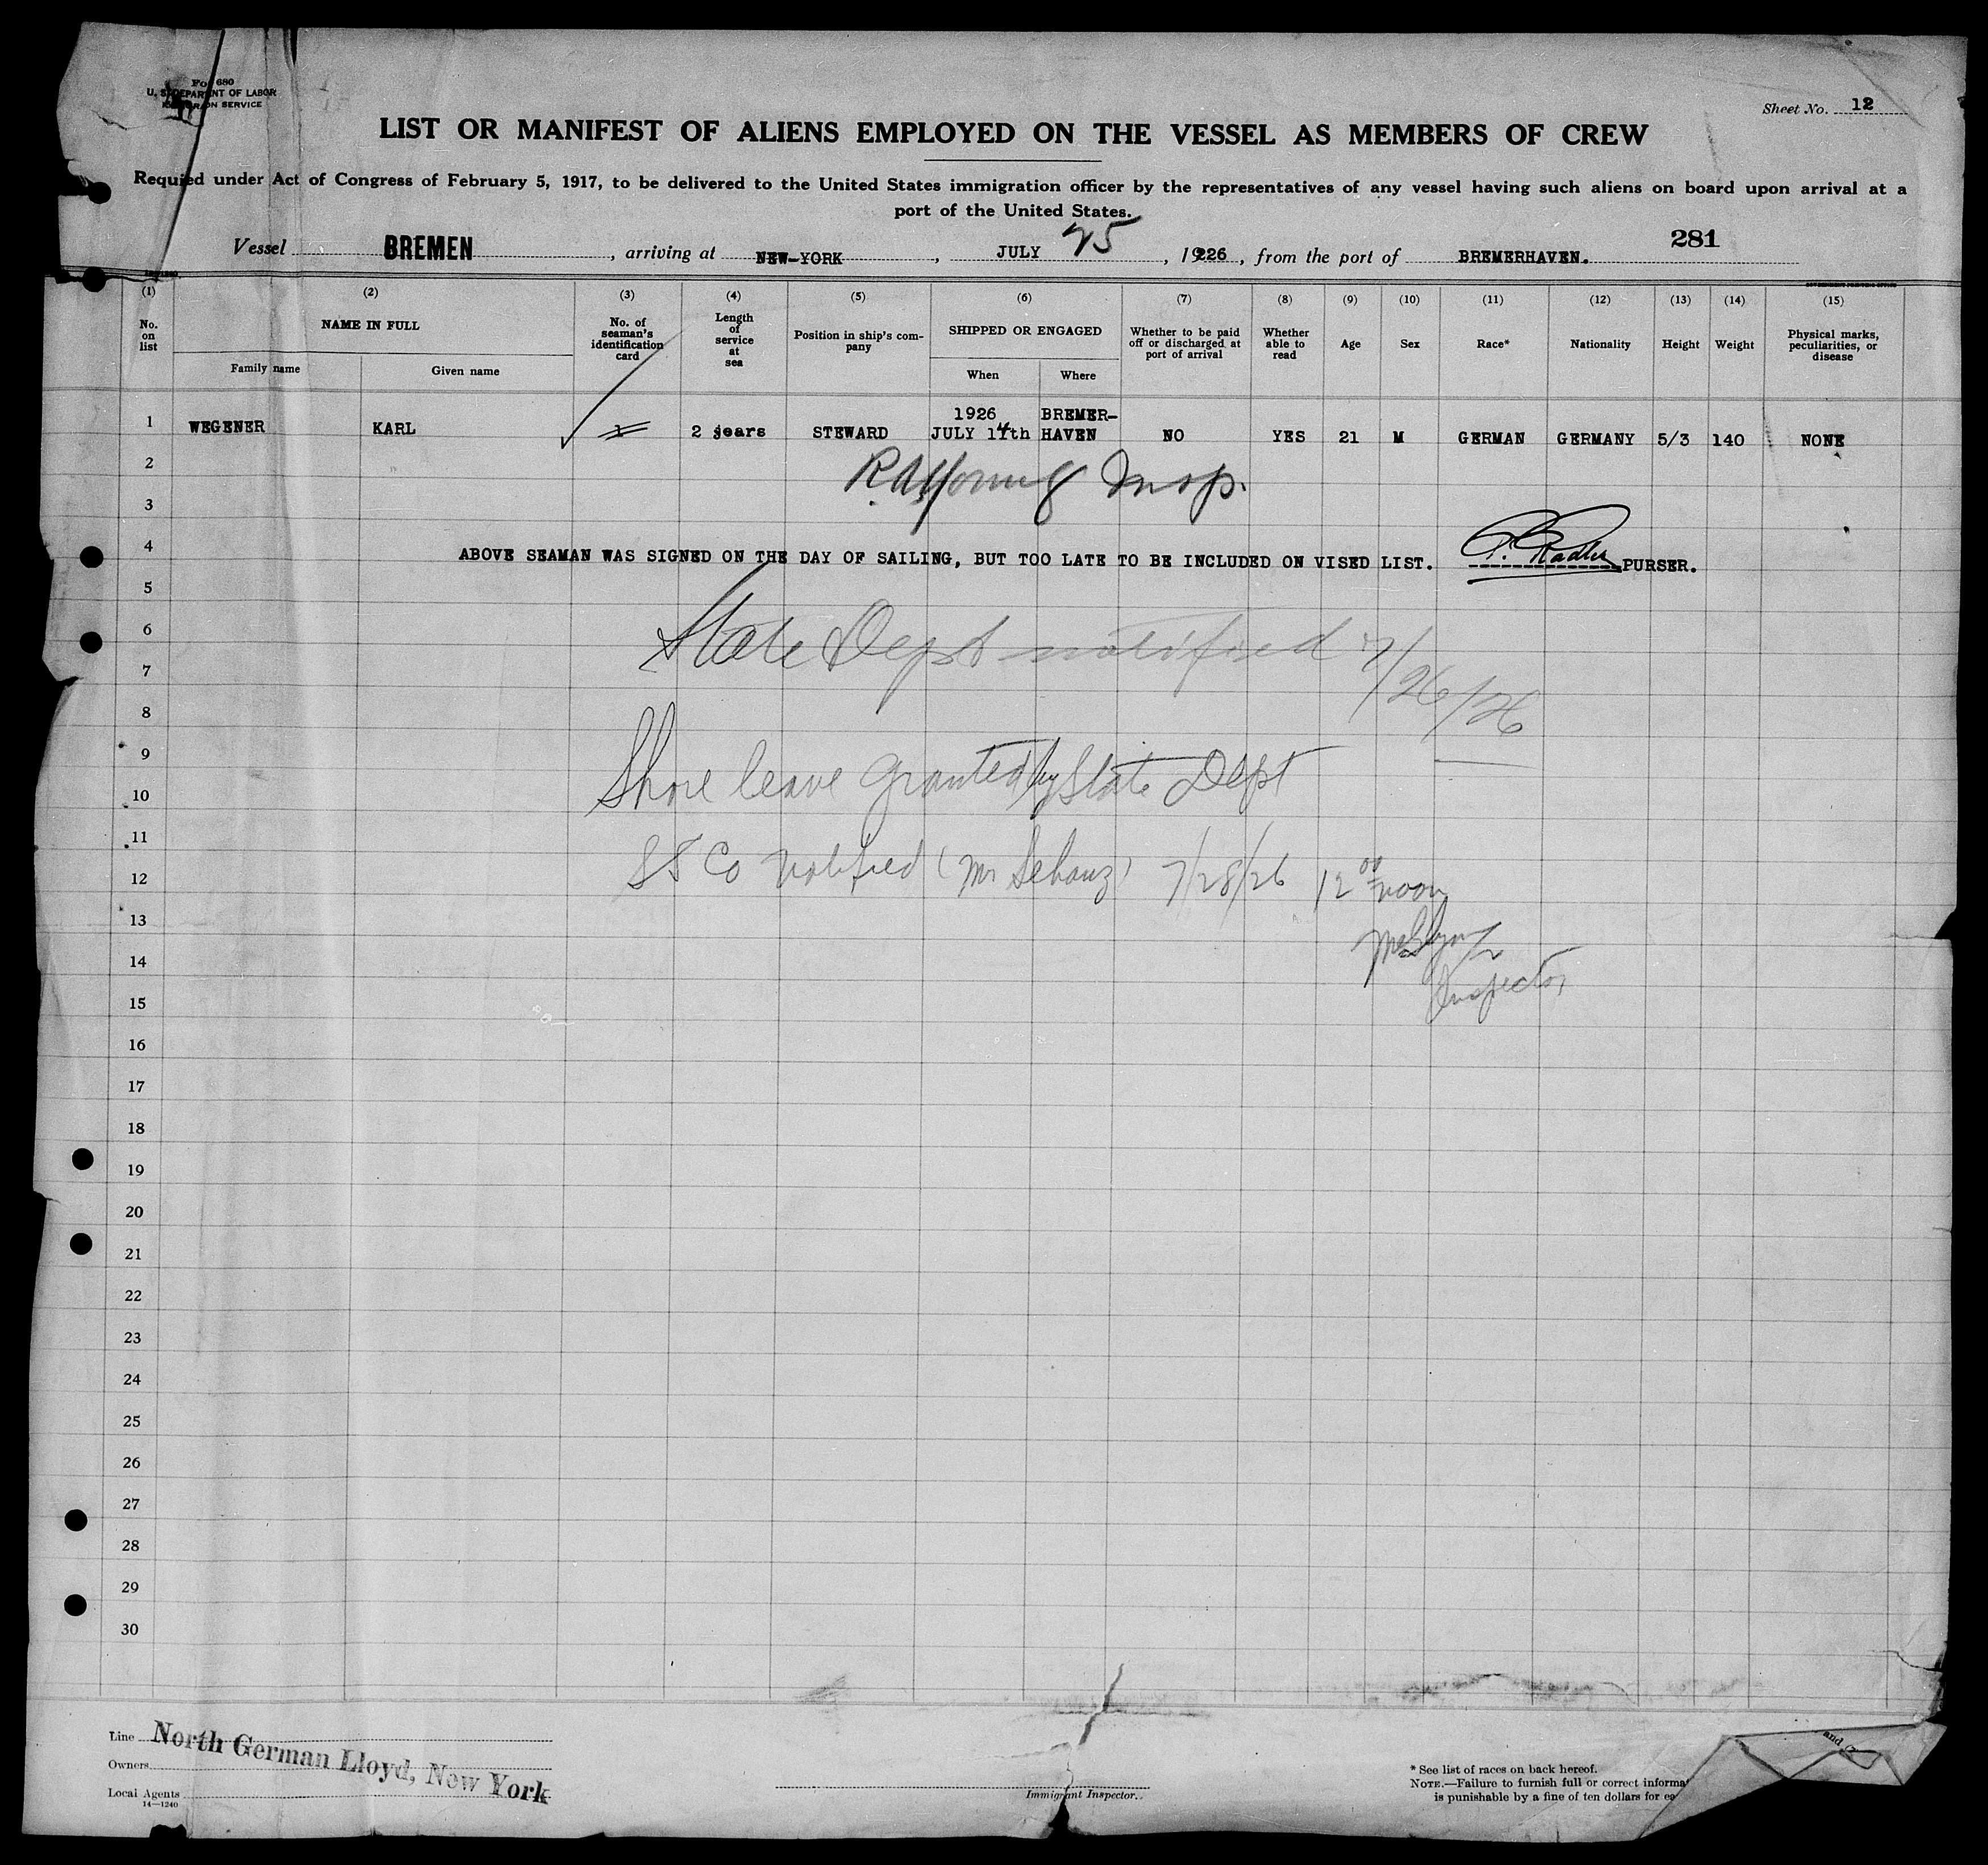 Fo 680
U. S. DEPARTMENT OF LABOR
IMMIGRATION SERVICE
Sheet No. 12
LIST OR MANIFEST OF ALIENS EMPLOYED ON THE VESSEL AS MEMBERS OF CREW
Required under Act of Congress of February 5, 1917, to be delivered to the United States immigration officer by the representatives of any vessel having such aliens on board upon arrival at a
port of the United States.
281
Vessel BREMEN, arriving at NEW-YORK, JULY 25, 1926, from the port of BREMERHAVEN.
(1) (2) (3) (4) (5) (6) (7) (8) (9) (10) (11) (12) (13) (14) (15)
No. on list
NAME IN FULL
Family name
Given name
No. of seaman's identification card
Length of service at sea
Position in ship's company
SHIPPED OR ENGAGED
When
Where
Whether to be paid off or discharged at port of arrival
Whether able to read
Age
Sex
Race*
Nationality
Height
Weight
Physical marks, peculiarities, or disease
1 WEGENER KARL 2 years STEWARD 1926 JULY 14th BREMER-HAVEN NO YES 21 M GERMAN GERMANY 5/3 140 NONE
2
Insp.
3
4
ABOVE SEAMAN WAS SIGNED ON THE DAY OF SAILING, BUT TOO LATE TO BE INCLUDED ON VISED LIST. PURSER.
5
6
State Dept notified 7/26/26
7
8
9
Shore leave granted by State Dept
10
11
SS Co notified (Mr Schanz) 7/28/26 12 00 noon
12
13
14
Inspector
15
16
17
18
19
20
21
22
23
24
25
26
27
28
29
30
Line North German Lloyd, New York
Owners
Local Agents
14—1240
Immigrant Inspector.
* See list of races on back hereof.
NOTE.—Failure to furnish full or correct informa
is punishable by a fine of ten dollars for ea
and (2)